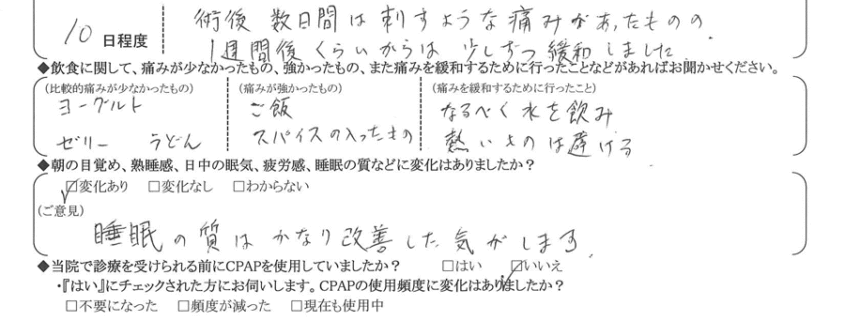 術後 数日間は刺すような痛みがあったものの
10 日程度 1週間後くらいからは 少しずつ緩和しました
◆飲食に関して、痛みが少なかったもの、強かったもの、また痛みを緩和するために行ったことなどがあればお聞かせください。
(比較的痛みが少なかったもの) (痛みが強かったもの) (痛みを緩和するために行ったこと)
ヨーグルト ご飯 なるべく水を飲み
ゼリー うどん スパイスの入ったもの 熱いものは避ける
◆朝の目覚め、熟睡感、日中の眠気、疲労感、睡眠の質などに変化はありましたか?
☑変化あり □変化なし □わからない
(ご意見)
睡眠の質はかなり改善した気がします。
◆当院で診療を受けられる前にCPAPを使用していましたか? □はい ☑いいえ
・『はい』にチェックされた方にお伺いします。CPAPの使用頻度に変化はありましたか?
□不要になった □頻度が減った □現在も使用中